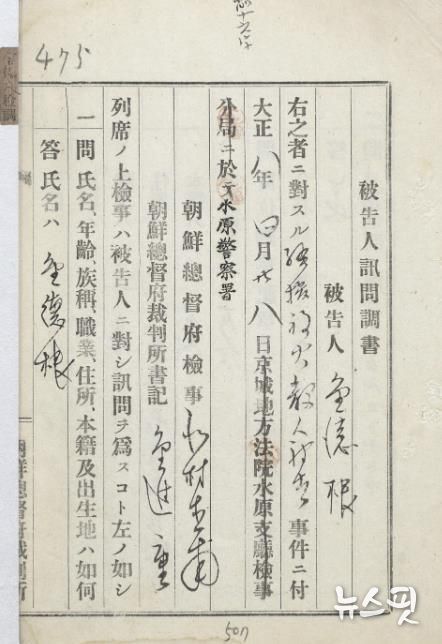 475
被告人訊問調書
被告人 金德根
右之者ニ對スル騷擾放火殺人 事件ニ付
大正 八年 四月 廿八 日京城地方法院水原支廳檢事
分局ニ於テ水原警察署
朝鮮總督府檢事 北村直甫
朝鮮總督府裁判所書記
列席ノ上檢事ハ被告人ニ對シ訊問ヲ爲スコト左ノ如シ
一問 氏名、年齡、族稱、職業、住所、本籍及出生地ハ如何
答 氏名ハ 金德根
朝鮮總督府裁判所
507
뉴스핏